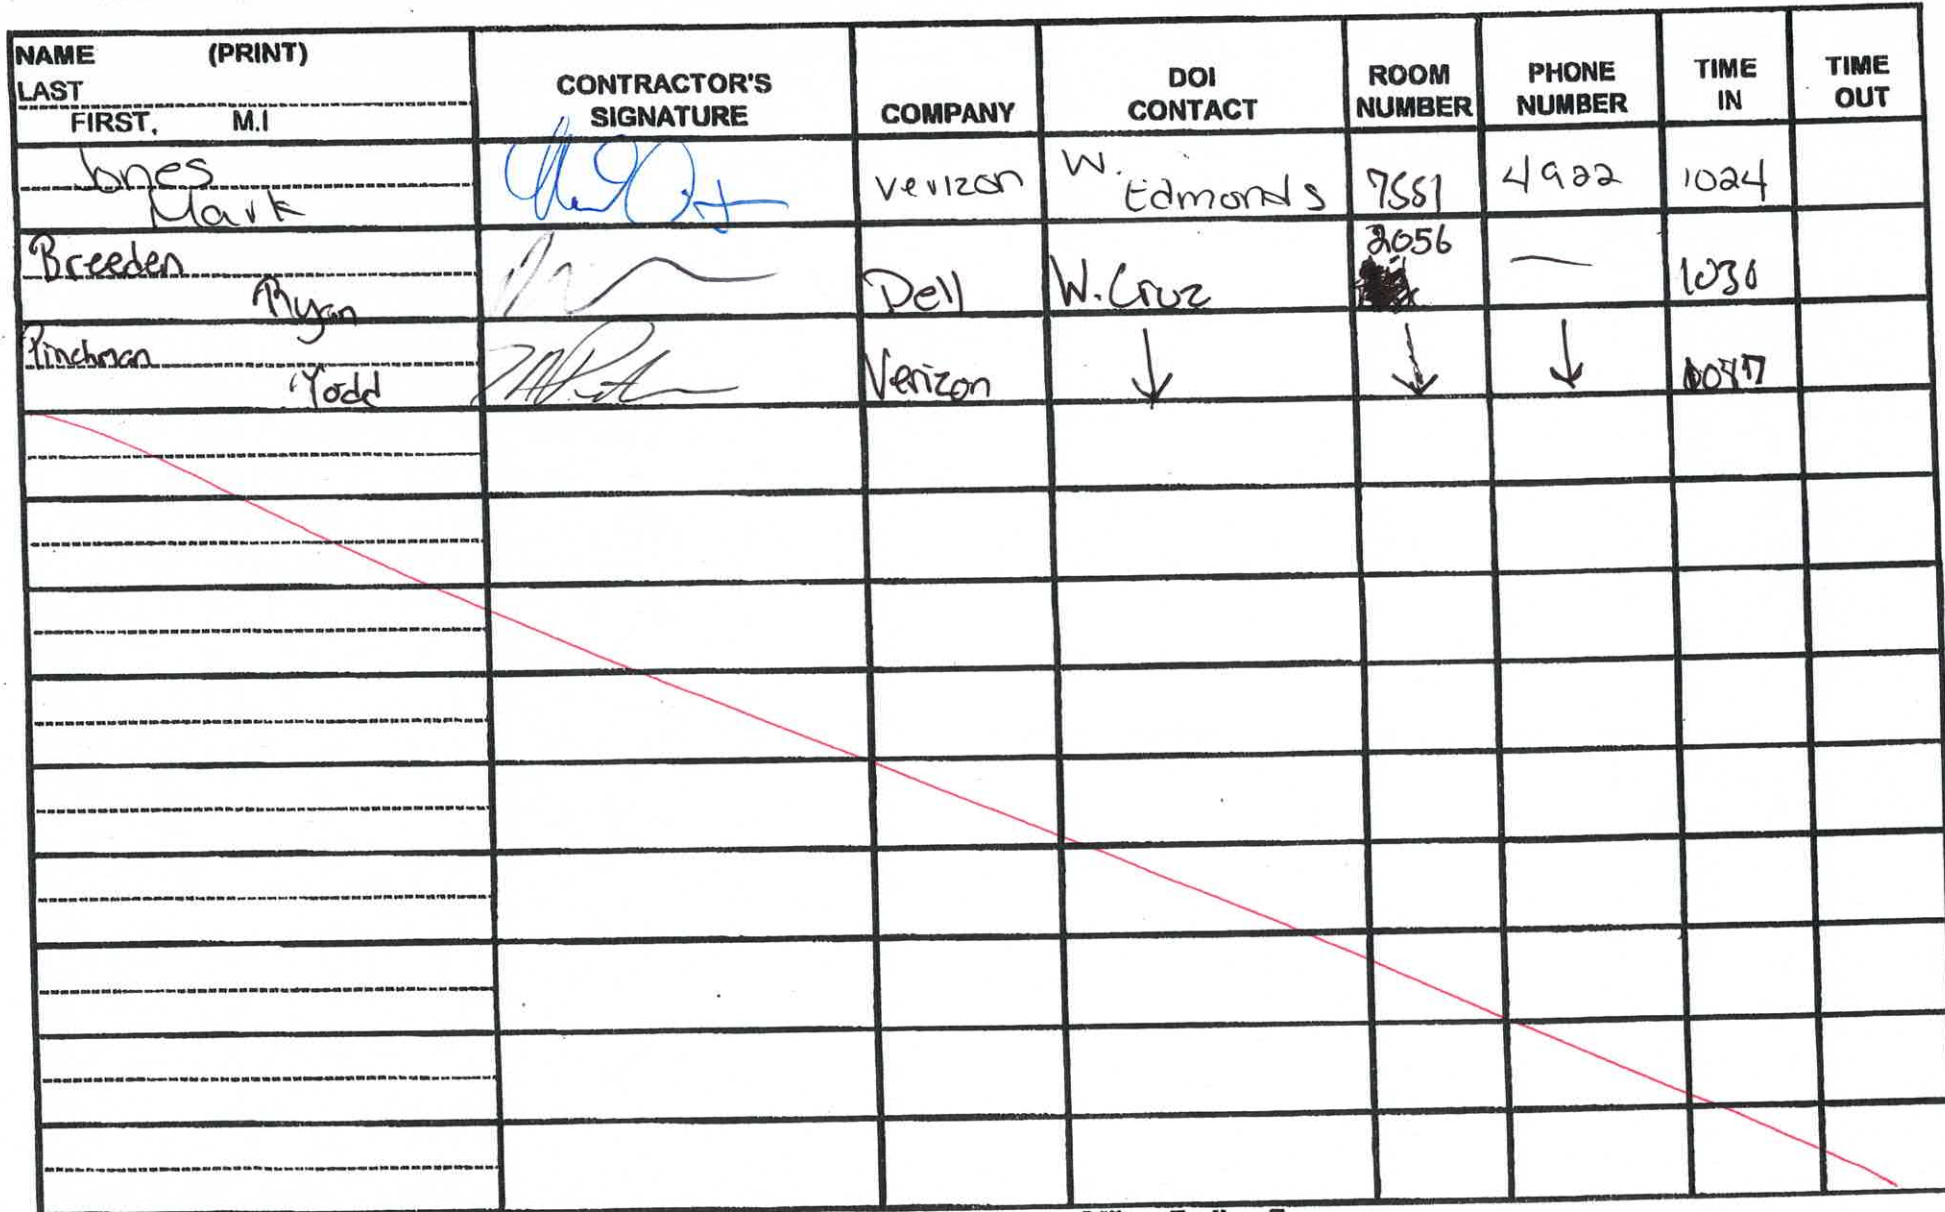 NAME (PRINT)
LAST
FIRST, M.I
CONTRACTOR'S
SIGNATURE
COMPANY
DOI
CONTACT
ROOM
NUMBER
PHONE
NUMBER
TIME
IN
TIME
OUT
Jones
Mark
Verizon
W.
Edmonds
7551
4922
1024
Breeden
Ryan
Dell
W. Cruz
2056
—
1030
Pinchman
Todd
Verizon
↓
↓
↓